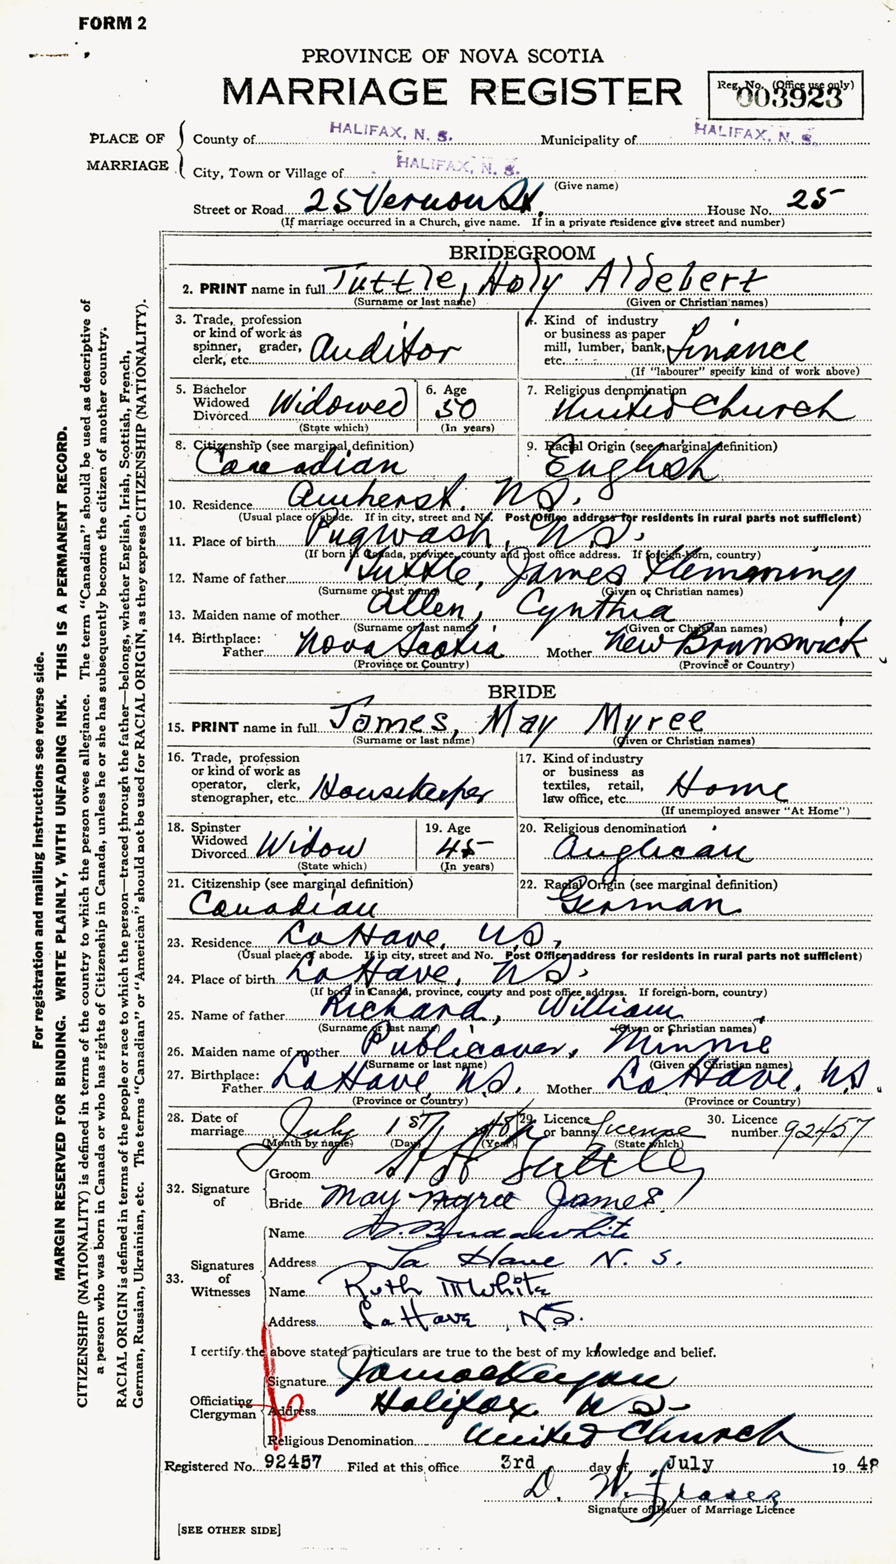 FORM 2
PROVINCE OF NOVA SCOTIA
MARRIAGE REGISTER
Reg. No. (Office use only)
003923
PLACE OF MARRIAGE
County of HALIFAX, N. S. Municipality of HALIFAX, N. S.
City, Town or Village of HALIFAX, N. S.
(Give name)
Street or Road 25 Vernon St. House No. 25
(If marriage occurred in a Church, give name. If in a private residence give street and number)
BRIDEGROOM
2. PRINT name in full Tuttle, Holy Aldebert
(Surname or last name) (Given or Christian names)
3. Trade, profession or kind of work as spinner, grader, clerk, etc. Auditor
4. Kind of industry or business as paper mill, lumber, bank, etc. Finance
(If "labourer" specify kind of work above)
5. Bachelor Widowed Divorced Widowed
(State which)
6. Age 50
(In years)
7. Religious denomination United Church
8. Citizenship (see marginal definition) Canadian
9. Racial Origin (see marginal definition) English
10. Residence Amherst. N.S.
(Usual place of abode. If in city, street and No. Post Office address for residents in rural parts not sufficient)
11. Place of birth Pugwash, N.S.
(If born in Canada, province, county and post office address. If foreign-born, country)
12. Name of father Tuttle, James Flemming
(Surname or last name) (Given or Christian names)
13. Maiden name of mother Allen, Cynthia
(Surname or last name) (Given or Christian names)
14. Birthplace: Father Nova Scotia Mother New Brunswick
(Province or Country) (Province or Country)
BRIDE
15. PRINT name in full James, May Myree
(Surname or last name) (Given or Christian names)
16. Trade, profession or kind of work as operator, clerk, stenographer, etc. Housekeeper
17. Kind of industry or business as textiles, retail, law office, etc. Home
(If unemployed answer "At Home")
18. Spinster Widowed Divorced Widow
(State which)
19. Age 45
(In years)
20. Religious denomination Anglican
21. Citizenship (see marginal definition) Canadian
22. Racial Origin (see marginal definition) German
23. Residence LaHave, N.S.
(Usual place of abode. If in city, street and No. Post Office address for residents in rural parts not sufficient)
24. Place of birth LaHave, N.S.
(If born in Canada, province, county and post office address. If foreign-born, country)
25. Name of father Richard, William
(Surname or last name) (Given or Christian names)
26. Maiden name of mother Publicover, Minnie
(Surname or last name) (Given or Christian names)
27. Birthplace: Father LaHave, N.S. Mother LaHave, N.S.
(Province or Country) (Province or Country)
28. Date of marriage July 1st 48
(Month by name) (Day) (Year)
29. Licence or banns License
(State which)
30. Licence number 92457
32. Signature of
Groom H A Tuttle
Bride May Myree James
33. Signatures of Witnesses
Name
Address La Have N. S.
Name Ruth M White
Address LaHave, N.S.
I certify the above stated particulars are true to the best of my knowledge and belief.
Officiating Clergyman
Signature
Address Halifax N.S.
Religious Denomination United Church
Registered No. 92457 Filed at this office 3rd day of July 1948
D. W. Fraser
Signature of Issuer of Marriage Licence
[SEE OTHER SIDE]
For registration and mailing instructions see reverse side.
MARGIN RESERVED FOR BINDING. WRITE PLAINLY, WITH UNFADING INK. THIS IS A PERMANENT RECORD.
CITIZENSHIP (NATIONALITY) is defined in terms of the country to which the person owes allegiance. The term "Canadian" should be used as descriptive of
a person who was born in Canada or who has rights of Citizenship in Canada, unless he or she has subsequently become the citizen of another country.
RACIAL ORIGIN is defined in terms of the people or race to which the person—traced through the father—belongs, whether English, Irish, Scottish, French,
German, Russian, Ukrainian, etc. The terms "Canadian" or "American" should not be used for RACIAL ORIGIN, as they express CITIZENSHIP (NATIONALITY).